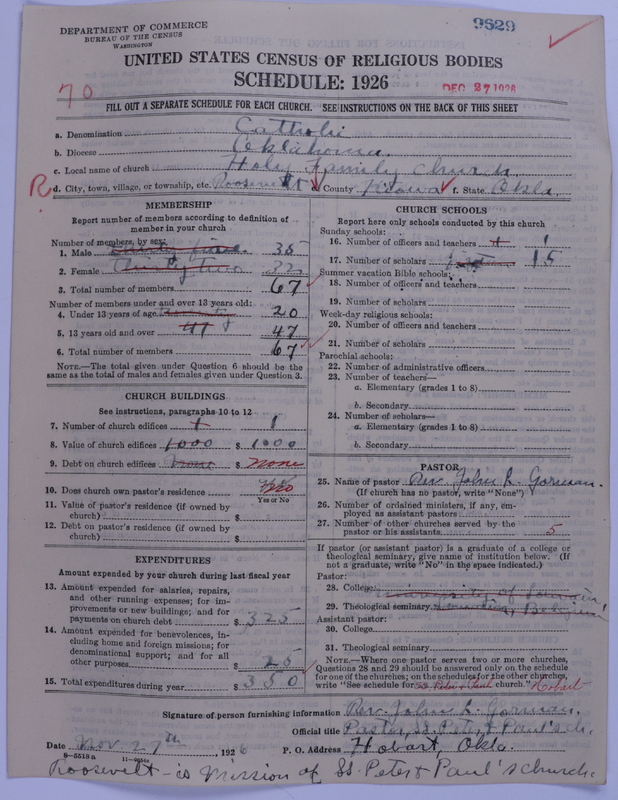 DEPARTMENT OF COMMERCE
BUREAU OF THE CENSUS
WASHINGTON
9829
UNITED STATES CENSUS OF RELIGIOUS BODIES
SCHEDULE: 1926
70
DEC 27 1926
FILL OUT A SEPARATE SCHEDULE FOR EACH CHURCH. SEE INSTRUCTIONS ON THE BACK OF THIS SHEET
a. Denomination Catholic
b. Diocese Oklahoma
c. Local name of church Holy Family Church.
R. d. City, town, village, or township, etc. Roosevelt e. County Kiowa f. State Okla.
MEMBERSHIP
Report number of members according to definition of member in your church
Number of members, by sex:
1. Male thirty five 35
2. Female thirty two 32
3. Total number of members 67
Number of members under and over 13 years old:
4. Under 13 years of age twenty 20
5. 13 years old and over 47 47
6. Total number of members 67
NOTE.—The total given under Question 6 should be the same as the total of males and females given under Question 3.
CHURCH BUILDINGS
See instructions, paragraphs 10 to 12
7. Number of church edifices 1 1
8. Value of church edifices 1000 $ 1000
9. Debt on church edifices None $ none
10. Does church own pastor's residence No
Yes or No
11. Value of pastor's residence (if owned by church) $
12. Debt on pastor's residence (if owned by church) $
EXPENDITURES
Amount expended by your church during last fiscal year
13. Amount expended for salaries, repairs, and other running expenses; for improvements or new buildings; and for payments on church debt $ 325
14. Amount expended for benevolences, including home and foreign missions; for denominational support; and for all other purposes $ 25
15. Total expenditures during year $ 350
CHURCH SCHOOLS
Report here only schools conducted by this church
Sunday schools:
16. Number of officers and teachers 1 1
17. Number of scholars 15
Summer vacation Bible schools:
18. Number of officers and teachers
19. Number of scholars
Week-day religious schools:
20. Number of officers and teachers
21. Number of scholars
Parochial schools:
22. Number of administrative officers
23. Number of teachers—
a. Elementary (grades 1 to 8)
b. Secondary
24. Number of scholars—
a. Elementary (grades 1 to 8)
b. Secondary
PASTOR
25. Name of pastor Rev. John L. Gorman.
(If church has no pastor, write "None")
26. Number of ordained ministers, if any, employed as assistant pastors
27. Number of other churches served by the pastor or his assistants 5
If pastor (or assistant pastor) is a graduate of a college or theological seminary, give name of institution below. (If not a graduate, write "No" in the space indicated.)
Pastor:
28. College University of Louvain
29. Theological seminary Louvain, Belgium
Assistant pastor:
30. College
31. Theological seminary
NOTE.—Where one pastor serves two or more churches, Questions 28 and 29 should be answered only on the schedule for one of the churches; on the schedules for the other churches, write "See schedule for SS Peter & Paul church." Hobart
Signature of person furnishing information Rev. John L. Gorman.
Official title Pastor, SS. Peter & Paul's ch.
Date Nov. 27th, 1926 P. O. Address Hobart, Okla.
Roosevelt - is Mission of SS. Peter & Paul's church.